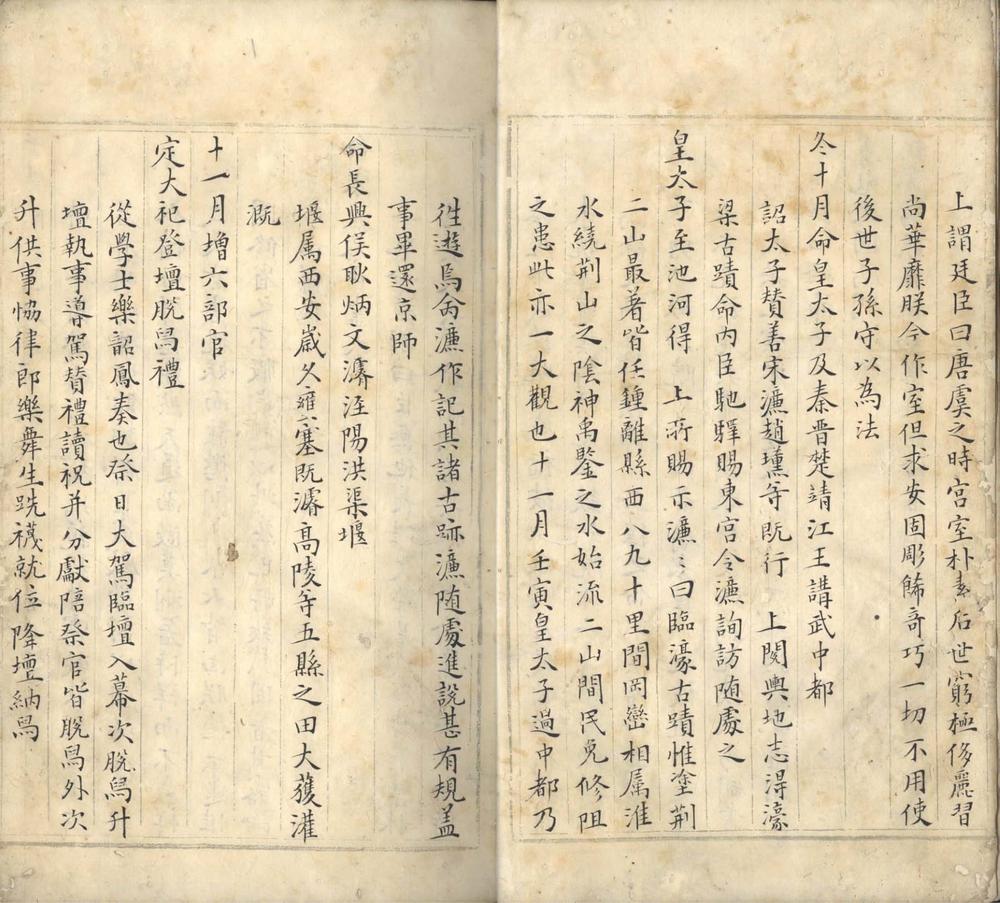 上謂廷臣曰唐虞之時宮室朴素后世窮極侈麗習
尚華靡朕今作室但求安固彫飾奇巧一切不用使
後世子孫守以為法
冬十月命皇太子及秦晋楚靖江王講武中都
詔太子賛善宋濂趙壎等既行　上閱輿地志淂濠
梁古蹟命內臣馳驛賜東宮令濂詢訪随處之
皇太子至池河得　上所賜示濂〻曰臨濠古蹟惟塗荆
二山最著皆在鍾離縣西八九十里間岡巒相属淮
水繞荆山之陰神禹鑿之水始流二山間民免修阻
之患此亦一大觀也十一月壬寅皇太子過中都乃
徃遊焉命濂作記其諸古跡濂随處進說甚有規益
事畢還京師
命長興侯耿炳文濬涇陽洪渠堰
堰属西安歲久壅塞既濬髙陵等五縣之田大獲灌
溉
十一月增六部官
定大祀登壇脫舄禮
從學士樂韶鳳奏也祭日大駕臨壇入幕次脫舄升
壇執事導駕賛禮讀祝并分獻陪祭官皆脫舄外次
升供事恊律郎樂舞生跣襪就位降壇納舄